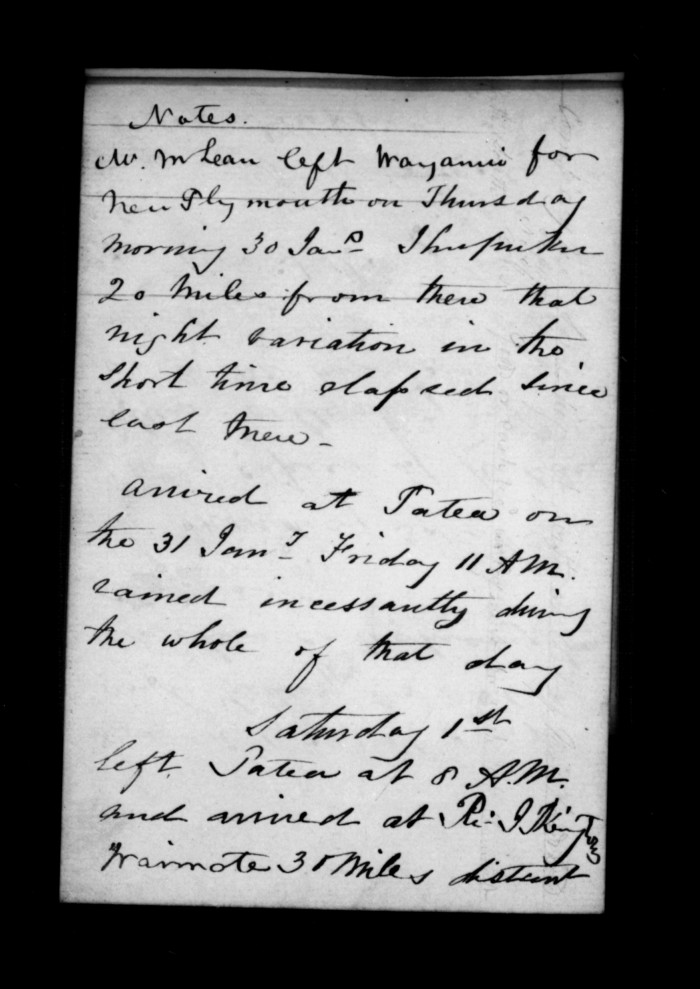 Notes.
Mr. McLean left Wanganui for
New Plymouth on Thursday
morning 30 Jany
20 Miles from there that
night variation in the
Short time elapsed Since
last there -
arrived at Patea on
the 31 Jany Friday 11 AM.
rained incessantly during
the whole of that day
Saturday 1st
left Patea at 8 A.M.
and arrived at
Waimate 30 Miles distant